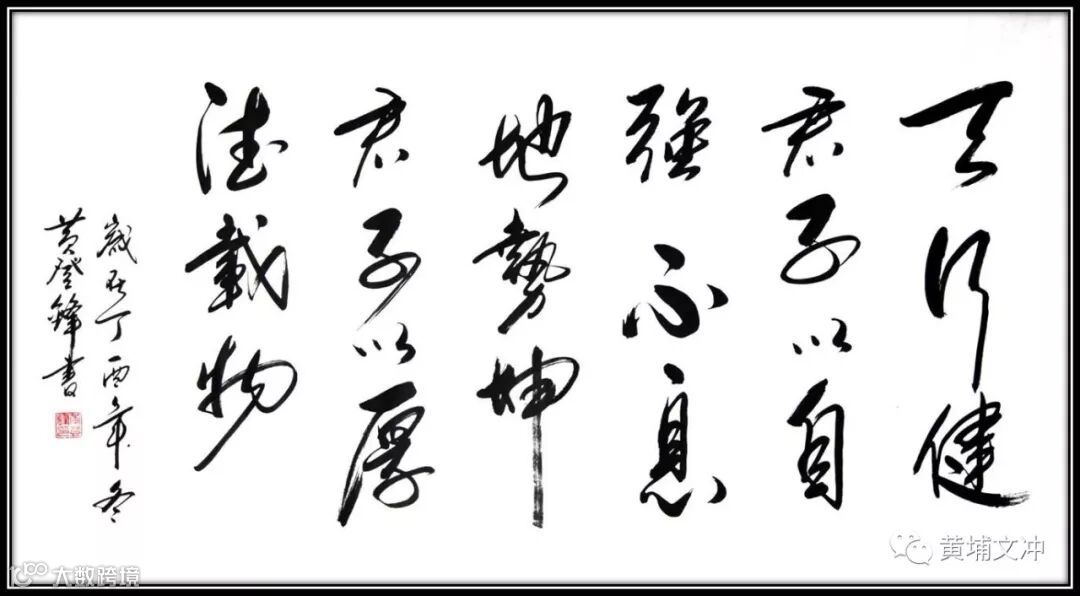 天行健
君子以自
強不息
地勢坤
君子以厚
德載物
歲在丁酉年冬
黄登鋒書
黄埔文冲
大数跨境